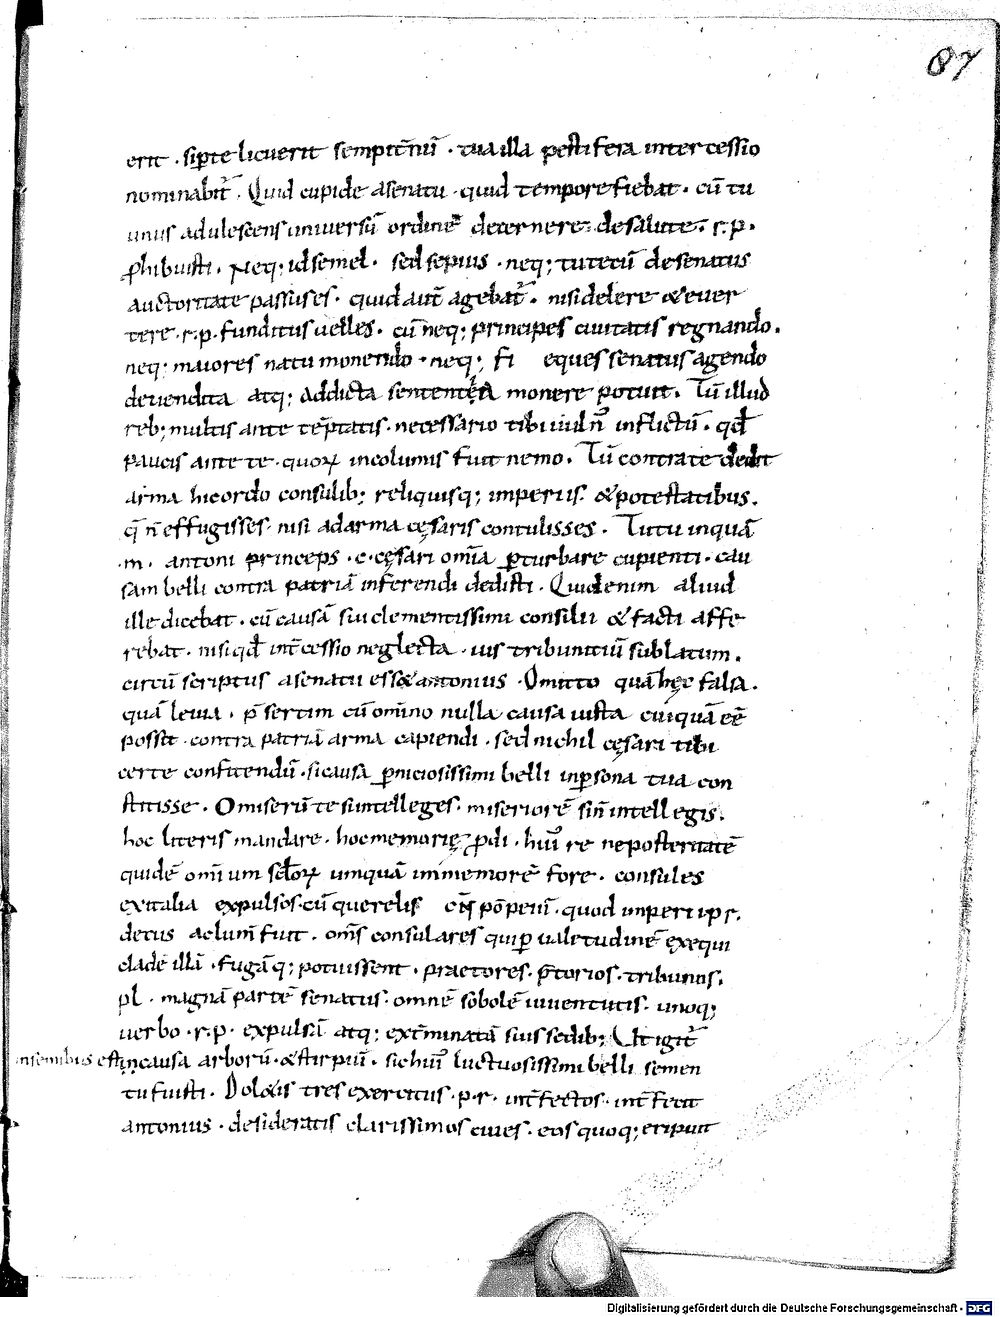 87
erit · si p̱te licuerit sempit̄nū · tua illa pestifera intercessio
nominabit̄ · Quid cupide a senatu · quid tempore fiebat · cū tu
unus adulescens uniuersū ordinē decernere de salute · r · p ·
ꝓhibuisti · Neq; id semel · sed sepius · neq; tu tecū de senatus
auctoritate passus es · quid aut̄ agebat̄ · nisi delere & euer
tere · r · p · funditus uelles · cū neq; principes ciuitatis regnando ·
neq; maiores natu monendo · neq; fi eques senatus agendo
deuendita atq; addicta sententia monere potuit · Tū illud
reb; multis ante tēptatis · necessario tibi uuln̄ inflictū · qđ
paucis ante te · quoꝝ incolumis fuit nemo · Tū contra te dedit
arma hic ordo consulib; reliquisq; imperiis · & potestatibus ·
q̄ n̄ effugisses · nisi ad arma cęsaris contulisses · Tu tu inquā
· m · antoni princeps · c · cęsari om̄ia ꝑturbare cupienti · cau
sam belli contra patriā inferendi dedisti · Quid enim aliud
ille dicebat · cū causā sui clementissimi consilii & facti affe
rebat · nisi qđ int̄cessio neglecta · ius tribunitiū sublatum ·
circū scriptus a senatu ess& antonius · Omitto quā hęc falsa ·
quā leuia · p̄sertim cū omīno nulla causa iusta cuiquā eē
possit · contra patriā arma capiendi · sed nichil cęsari tibi
certe confitendū · si causa ꝑniciosissimi belli in ꝑsona tua con
stitisse · O miserū te si intelleges · miseriorē si n̄ intellegis ·
hoc literis mandare · hoc memorię ꝓdi · hui᷒ re ne posteritatē
quidē omium scl̄oꝝ umquā immemorē fore · consules
ex italia expulsos · cū querelis cn̄s pōpeiū · quod imperii p r ·
decus ac lum̄ fuit · om̄s consulares qui ꝑ ualetudinē exequi
cladē illā · fugāq; potuissent · praetores · p̄torios · tribunos ·
pl · magnā partē senatus · omnē sobolē iuuentutis · unoq;
uerbo · r · p · expulsā atq; ext̄minatā suis sedib; Ut igit̄
in semibus est in causa arborū · & stirpiū · sic hui᷒ luctuosissimi belli semen
tu fuisti · Dol&is tres exercitus · p · r · int̄fectos · int̄fecit
antonius · desideratis clarissimos ciues · eos quoq; eripuit
Digitalisierung gefördert durch die Deutsche Forschungsgemeinschaft - DFG